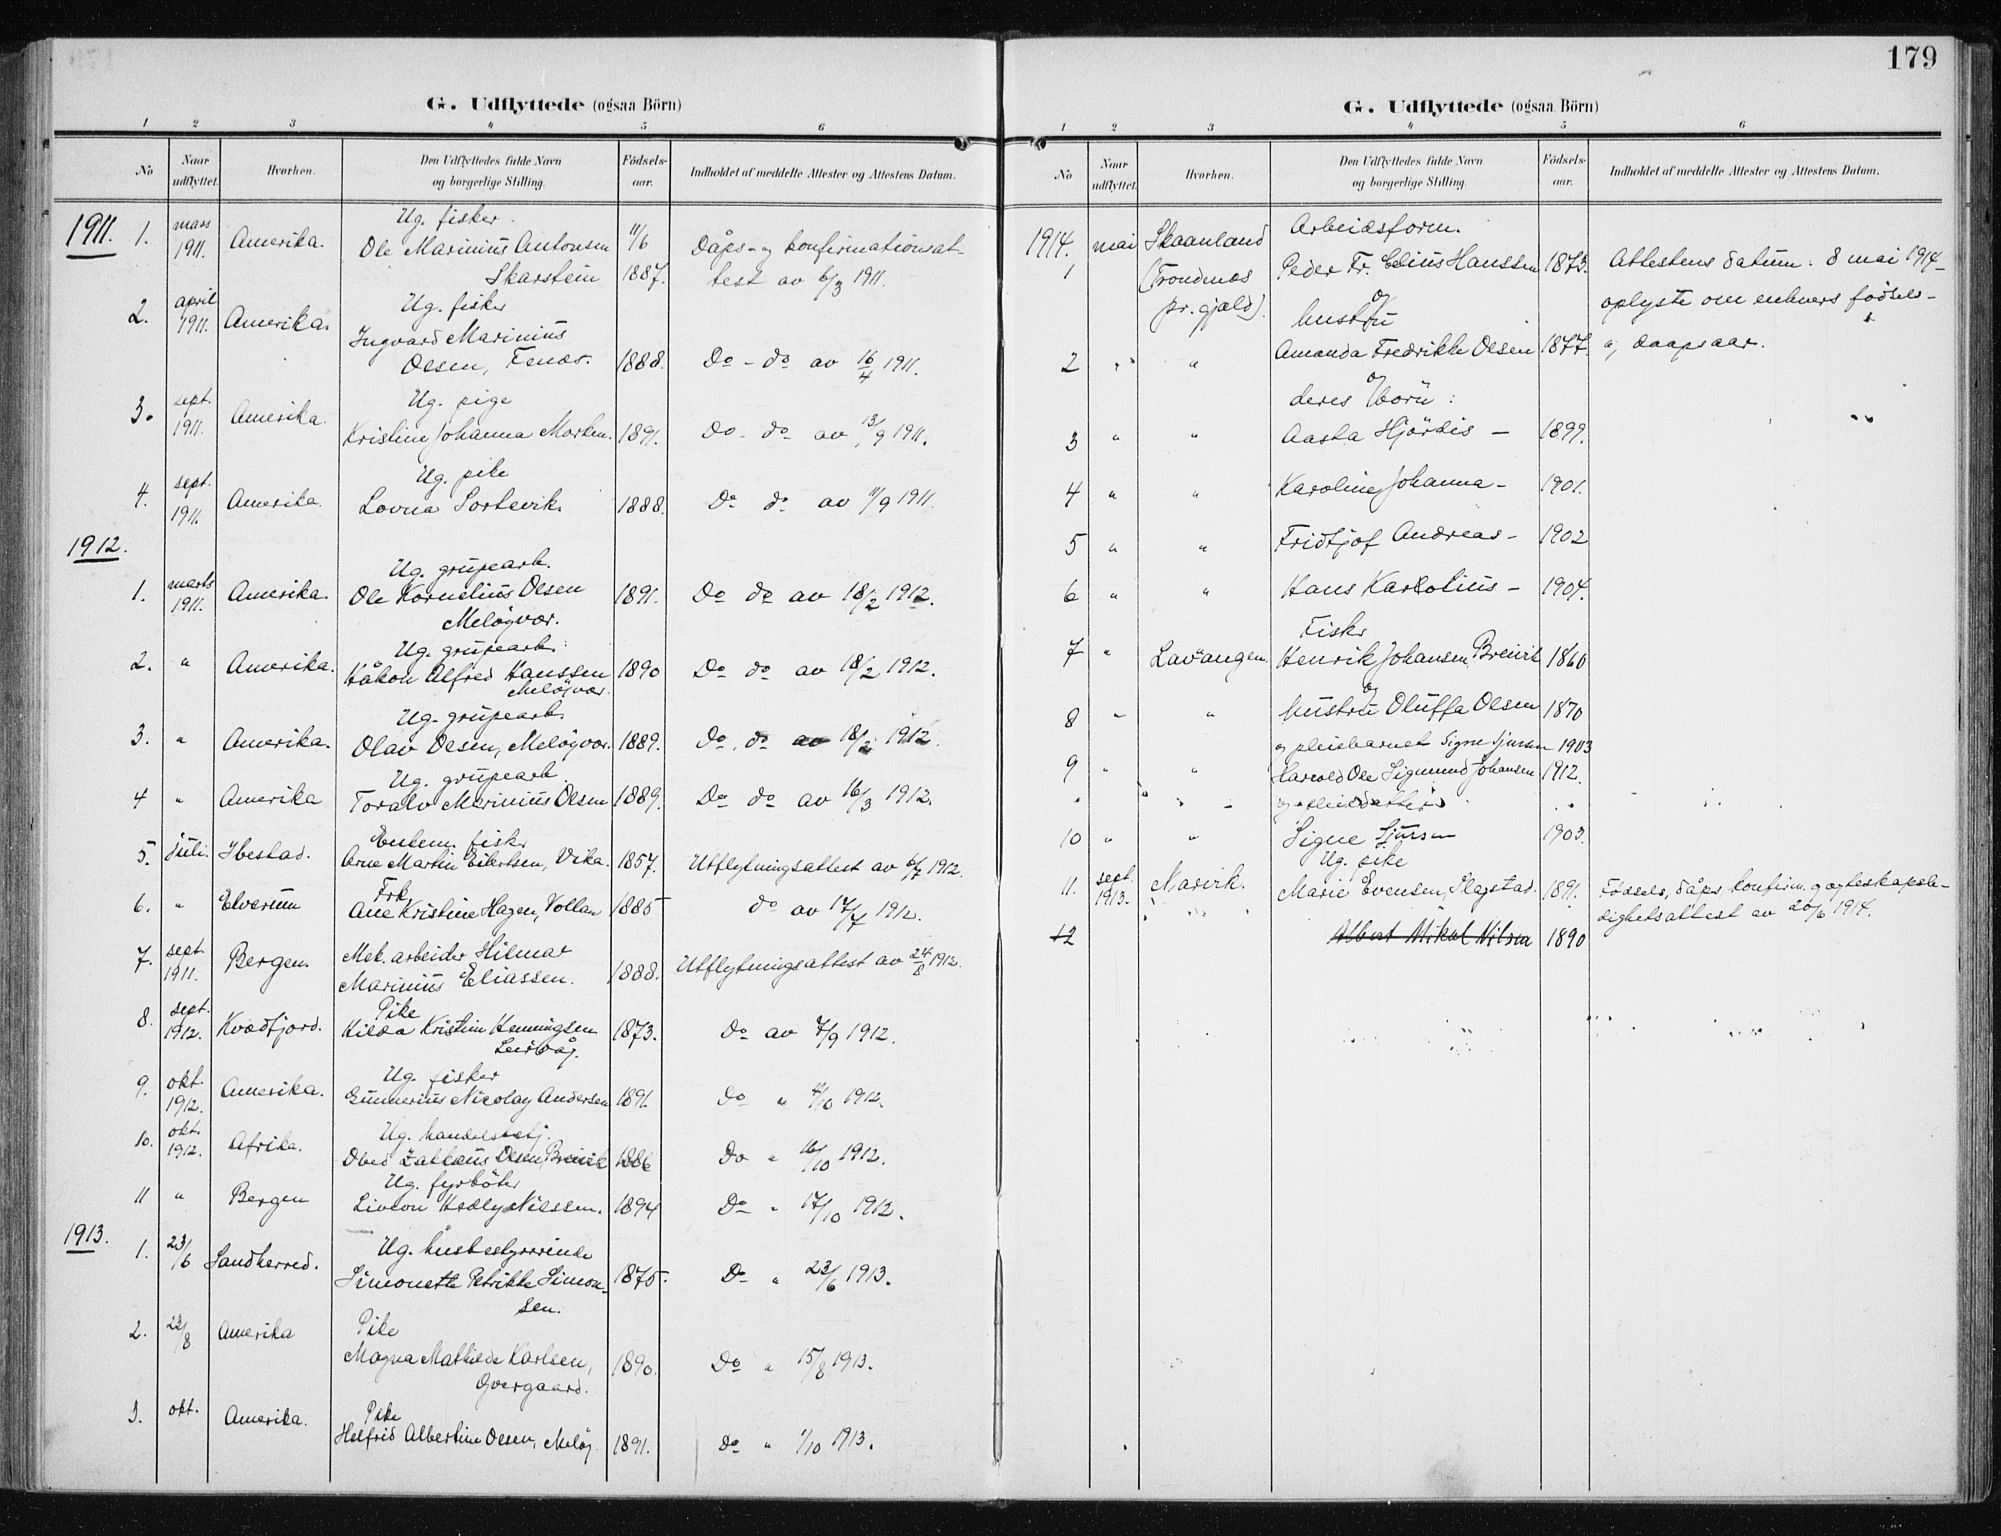 G. Udflyttede (ogsaa Börn)
1 2 3 4 5 6
No Naar udflyttet. Hvorhen. Den Udflyttedes fulde Navn og borgerlige Stilling. Födsels-aar. Indholdet af meddelte Attester og Attestens Datum.
1911. 1. mars 1911. Amerika. Ug. fisker
Ole Marinius Antonsen 11/6 Dåps- og konfirmationsat-
Skarstein 1887. test av 6/3 1911.
2. april 1911. Amerika. Ug. fisker
Ingvard Marinius
Olsen, Fenæs. 1888. Do - do av 16/4 1911.
3. sept. 1911. Amerika. Ug. pige
Kristine Johanna Morten. 1891. Do - do av 13/9 1911.
4. sept. 1911. Amerika. Ug. pike
Lovna Sortevik. 1888. Do do av 11/9 1911.
1912.
1. marts 1911. Amerika. Ug. grupearb.
Ole Kornelius Olsen 1891. Do do av 18/2 1912.
Meløyvær.
2. " Amerika. Ug. grupearb.
Håkon Alfred Hanssen 1890 Do do av 18/2 1912.
Meløyvær.
3. " Amerika. Ug. grupearb.
Olav Olsen, Meløyvær. 1889. Do. do av 18/2 1912.
4 " Amerika Ug. grupearb.
Toralv Marinius Olsen 1889. Do do av 16/3 1912.
5. Juli. Ibestad. Enkem. fisker
Arne Martin Eilertsen, Vika. 1857. Utflytningsattest av 6/7 1912.
6. " Elverum Frk.
Ane Kristine Hagen, Vollan 1885 do av 17/7 1912.
7. sept. 1911. Bergen. Mek. arbeider Hilmar
Marinius Eliassen. 1888. Utflytningsattest av 24/8 1912.
8. sept. 1912. Kvædfjord. Pike
Hilda Kristine Henningsen 1873. Do av 7/9 1912.
Leirvåg.
9. okt. 1912. Amerika. Ug. fisker
Gunnerius Nicolay Andersen 1891. Do " 4/10 1912.
10. okt. 1912. Afrika. Ug. handelsbetj.
Obed Zakkæus Olsen, Breivik 1886 Do " 16/10 1912.
11 " Bergen Ug. fyrböter
Livion Hedly Nilssen. 1894 Do " 17/10 1912.
1913.
1. 23/6 Sandherred. Ug. husbestyrerinde
Simonette Petrikke Simon- 1875. Do " 23/6 1913.
sen.
2. 22/8 Amerika Pike
Magna Mathilde Karlsen, 1890. Do " 15/8 1913.
Overgaard.
3. okt. Amerika. Pike
Helfrid Albertine Olsen, Meløy 1891. Do " 1/10 1913.
179
G. Udflyttede (ogsaa Börn)
1 2 3 4 5 6
No Naar udflyttet. Hvorhen. Den Udflyttedes fulde Navn og borgerlige Stilling. Födsels-aar. Indholdet af meddelte Attester og Attestens Datum.
1914. mai Skaanland Arbeidsform.
1 (Trondenæs Peder Fr. Edius Hanssen 1873. Attestens datum: 8 mai 1914
pr.gjæld). og oplyste om enhvers födsels-
hustru
2 " " Amanda Fredrikke Olsen 1877. og daapsaar.
og
deres börn:
3 " " Aasta Hjördis - 1899.
4 " " Karoline Johanna - 1901.
5 " " Fridtjof Andreas - 1902
6 " " Hans Karolius - 1904.
Fisker
7 " Lavangen. Henrik Johansen, Breivik 1860
og
8 " " hustru Oluffa Olsen 1870
og pleiebarnet Signe Sjursen 1903
9 " " Harald Ole Sigmund Johansen 1912.
og pleiedatter
10 " " Signe Sjursen 1903.
Ug. pike
11. sept. 1913. Marvik. Marie Evensen, Slagstad. 1891. Födsels, dåps, konfirm. og ægteskapsle-
dighetsattest av 20/6 1914.
12 Albert Mikal Nilsen 1890